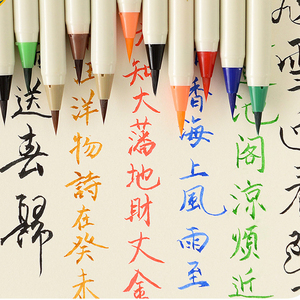 閣涼煩近
香海上風雨至
知大藩地財丈金
洋物詩在癸未
送春歸